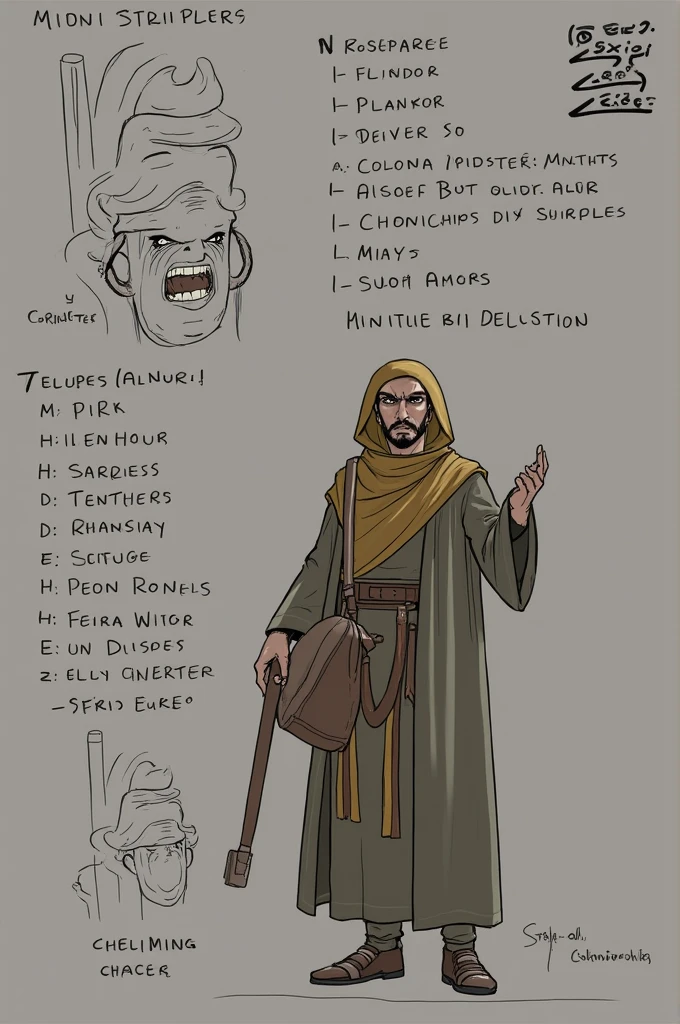 MIDNI STRIIPLERS
N ROSEPAREE
I- FLINDOR
I- PLANKOR
I- DEIVER SO
A: COLONA IPIDSTER: MNTHTS
I- AISOEF BUT OLIDT. ALUR
I- CHONICHIPS DIY SUIRPLES
L. MIAYS
I- SUOH AMORS
MINITUE BII DELLSTION
Y
CORINGTEK
TELUPES (ALNURI!
M: PIRK
H: ILENHOUR
H: SARRIESS
D: TENTHERS
D: RHANSIAY
E: SCITUGE
H: PEON RONELS
H: FEIRA WITOR
E: UN DIISDES
Z: ELLY GNERTER
-SFRIS EUKEO
CHELIMING
CHACER